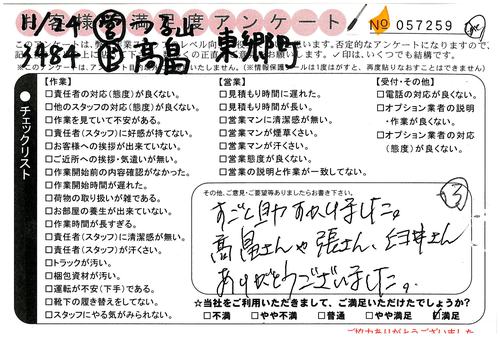 11/24 営
お客様満足度アンケート
No 057259
3484 高畠 東郷町
●チェックリスト
【作業】
□責任者の対応(態度)が良くない。
□他のスタッフの対応(態度)が良くない。
□作業を見ていて不安がある。
□責任者(スタッフ)に好感が持てない。
□お客様への挨拶が出来ていない。
□ご近所への挨拶・気遣いが無い。
□作業開始前の内容確認がなかった。
□作業開始時間が遅れた。
□荷物の取り扱いが雑である。
□お部屋の養生が出来ていない。
□作業時間が長すぎる。
□責任者(スタッフ)に清潔感が無い。
□責任者(スタッフ)が汗くさい。
□トラックが汚い。
□梱包資材が汚い。
□運転が不安(下手)である。
□靴下の履き替えをしてない。
□スタッフにやる気がみられない。
【営業】
□見積もり時間に遅れた。
□見積もり時間が長い。
□営業マンに清潔感が無い。
□営業マンが煙草くさい。
□営業マンが汗くさい。
□営業態度が良くない。
□営業の説明と作業が一致してない。
【受付・その他】
□電話の対応が良くない。
□オプション業者の説明
・作業が良くない。
□オプション業者の対応
(態度)が良くない。
その他、ご意見・ご要望等ありましたらお書き下さい。
③
すごく助かりました。
高畠さんや張さん、臼井さん
ありがとうございました。
☆当社をご利用いただきまして、ご満足いただけたでしょうか?
□不満 □やや不満 □普通 □やや満足 ☑満足
ご協力ありがとうございました